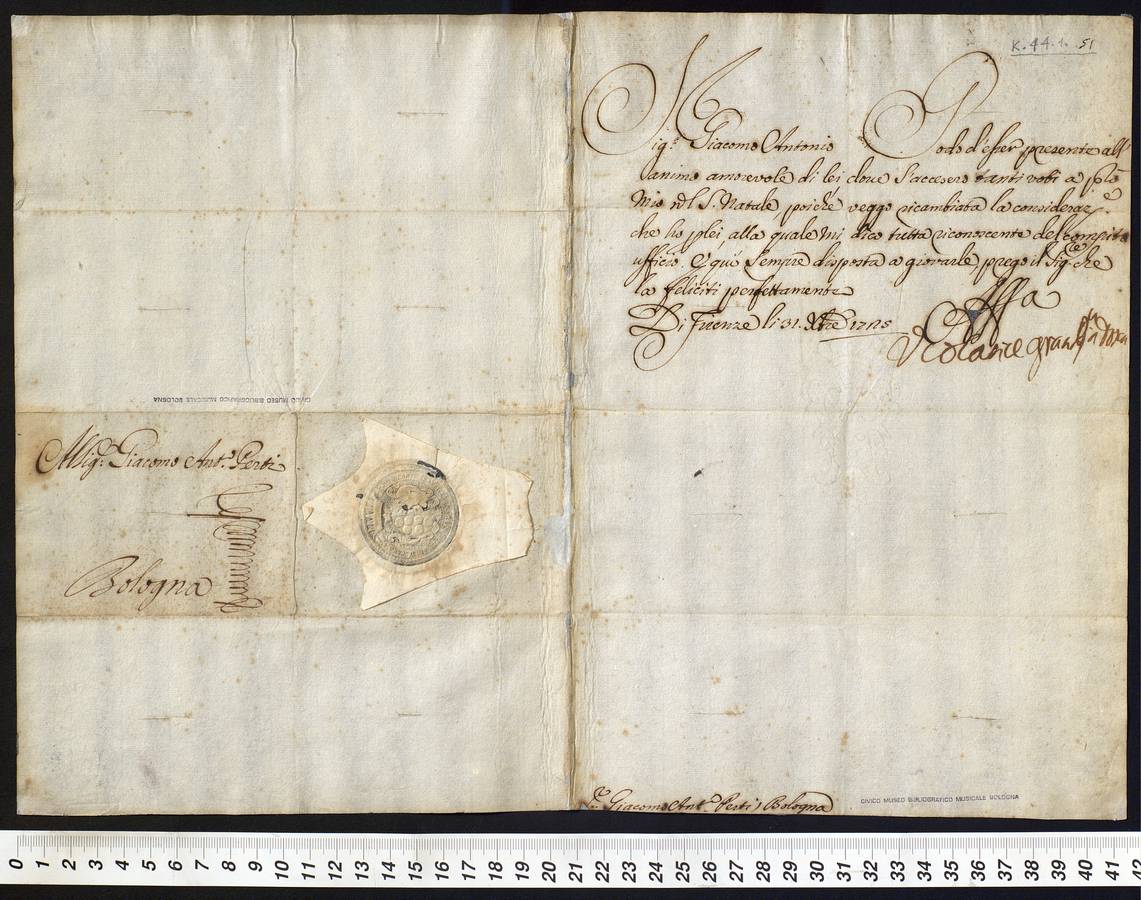 K.44.1.51
Sig.r Giacomo Antonio Godo d'esser presente all'
animo amorevole di lei dove s'accesero tanti voti a prò
mio nel S. Natale, poiche veggo ricambiata la consideraz.e
che ho p lei, alla quale mi dico tutta riconoscente del compito
ufficio. E qui sempre disposta a giovarle, prego il Sig.re che
la feliciti perfettamente
Di Firenze li 31. Xbre 1725
Aff.a
Violante
CIVICO MUSEO BIBLIOGRAFICO MUSICALE BOLOGNA
Al Sig.r Giacomo Ant.o Perti
Bologna
S.r Giacomo Ant.o Perti Bologna
CIVICO MUSEO BIBLIOGRAFICO MUSICALE BOLOGNA
0 1 2 3 4 5 6 7 8 9 10 11 12 13 14 15 16 17 18 19 20 21 22 23 24 25 26 27 28 29 30 31 32 33 34 35 36 37 38 39 40 41 42